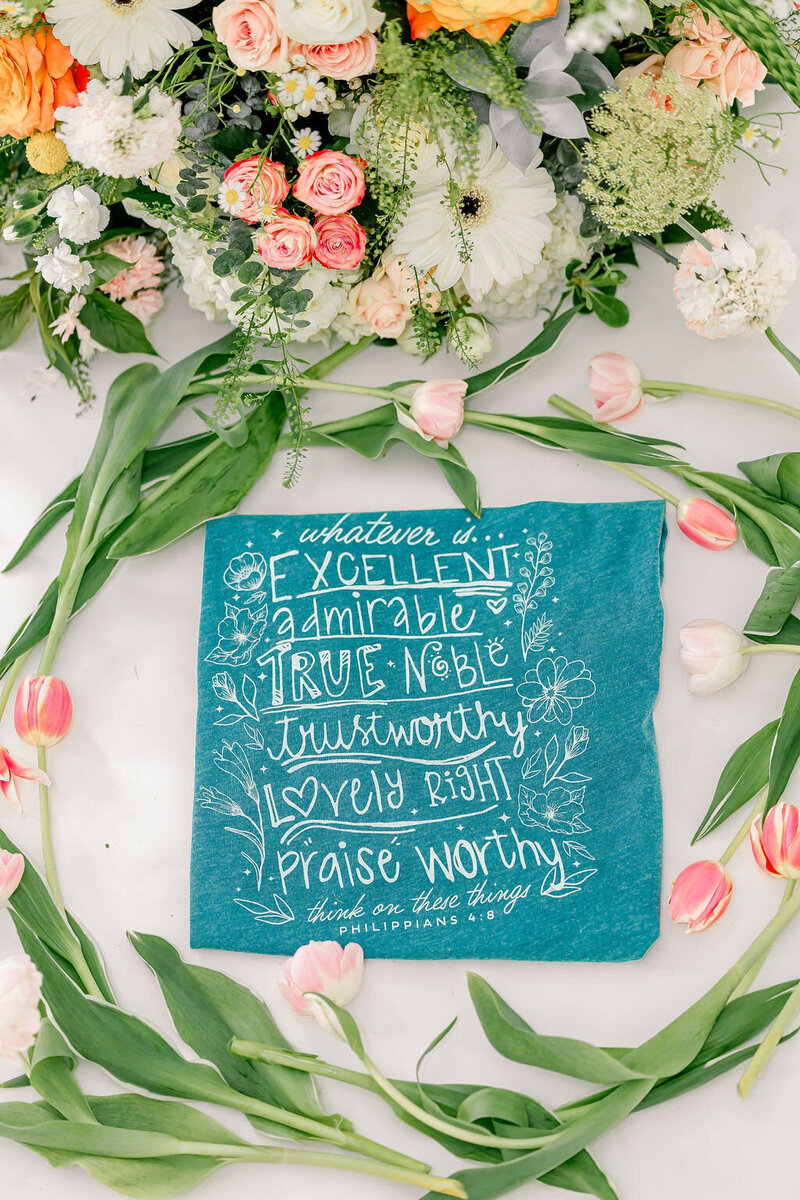 whatever is...
EXCELLENT
admirable
TRUE NOBLE
trustworthy
LOVELY RIGHT
praise worthy
think on these things
PHILIPPIANS 4:8